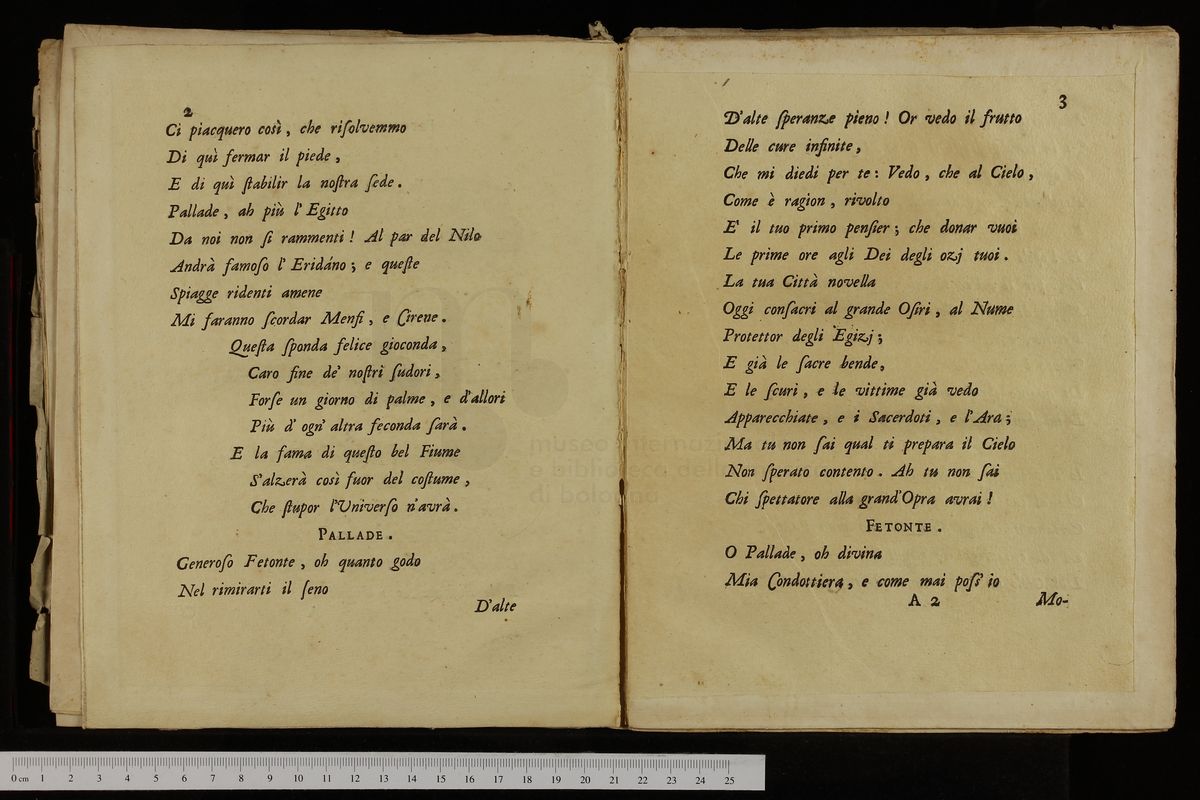 2
Ci piacquero così, che riſolvemmo
Di quì fermar il piede,
E di quì ſtabilir la noſtra ſede.
Pallade, ah più l'Egitto
Da noi non ſi rammenti! Al par del Nilo
Andrà famoſo l'Eridáno; e queſte
Spiagge ridenti amene
Mi faranno ſcordar Menfi, e Cirene.
Queſta ſponda felice gioconda,
Caro fine de' noſtri ſudori,
Forſe un giorno di palme, e d'allori
Più d'ogn'altra feconda ſarà.
E la fama di queſto bel Fiume
S'alzerà così fuor del coſtume,
Che ſtupor l'Univerſo n'avrà.
PALLADE.
Generoſo Fetonte, oh quanto godo
Nel rimirarti il ſeno
D'alte
3
D'alte ſperanze pieno! Or vedo il frutto
Delle cure infinite,
Che mi diedi per te: Vedo, che al Cielo,
Come è ragion, rivolto
E' il tuo primo penſier; che donar vuoi
Le prime ore agli Dei degli ozj tuoi.
La tua Città novella
Oggi conſacri al grande Oſiri, al Nume
Protettor degli Egizj;
E già le ſacre bende,
E le ſcuri, e le vittime già vedo
Apparecchiate, e i Sacerdoti, e l'Ara;
Ma tu non ſai qual ti prepara il Cielo
Non ſperato contento. Ah tu non ſai
Chi ſpettatore alla grand'Opra avrai!
FETONTE.
O Pallade, oh divina
Mia Condottiera, e come mai poſſ' io
A 2
Mo-
museo internazi
e biblioteca della
di bologna
0 cm 1 2 3 4 5 6 7 8 9 10 11 12 13 14 15 16 17 18 19 20 21 22 23 24 25